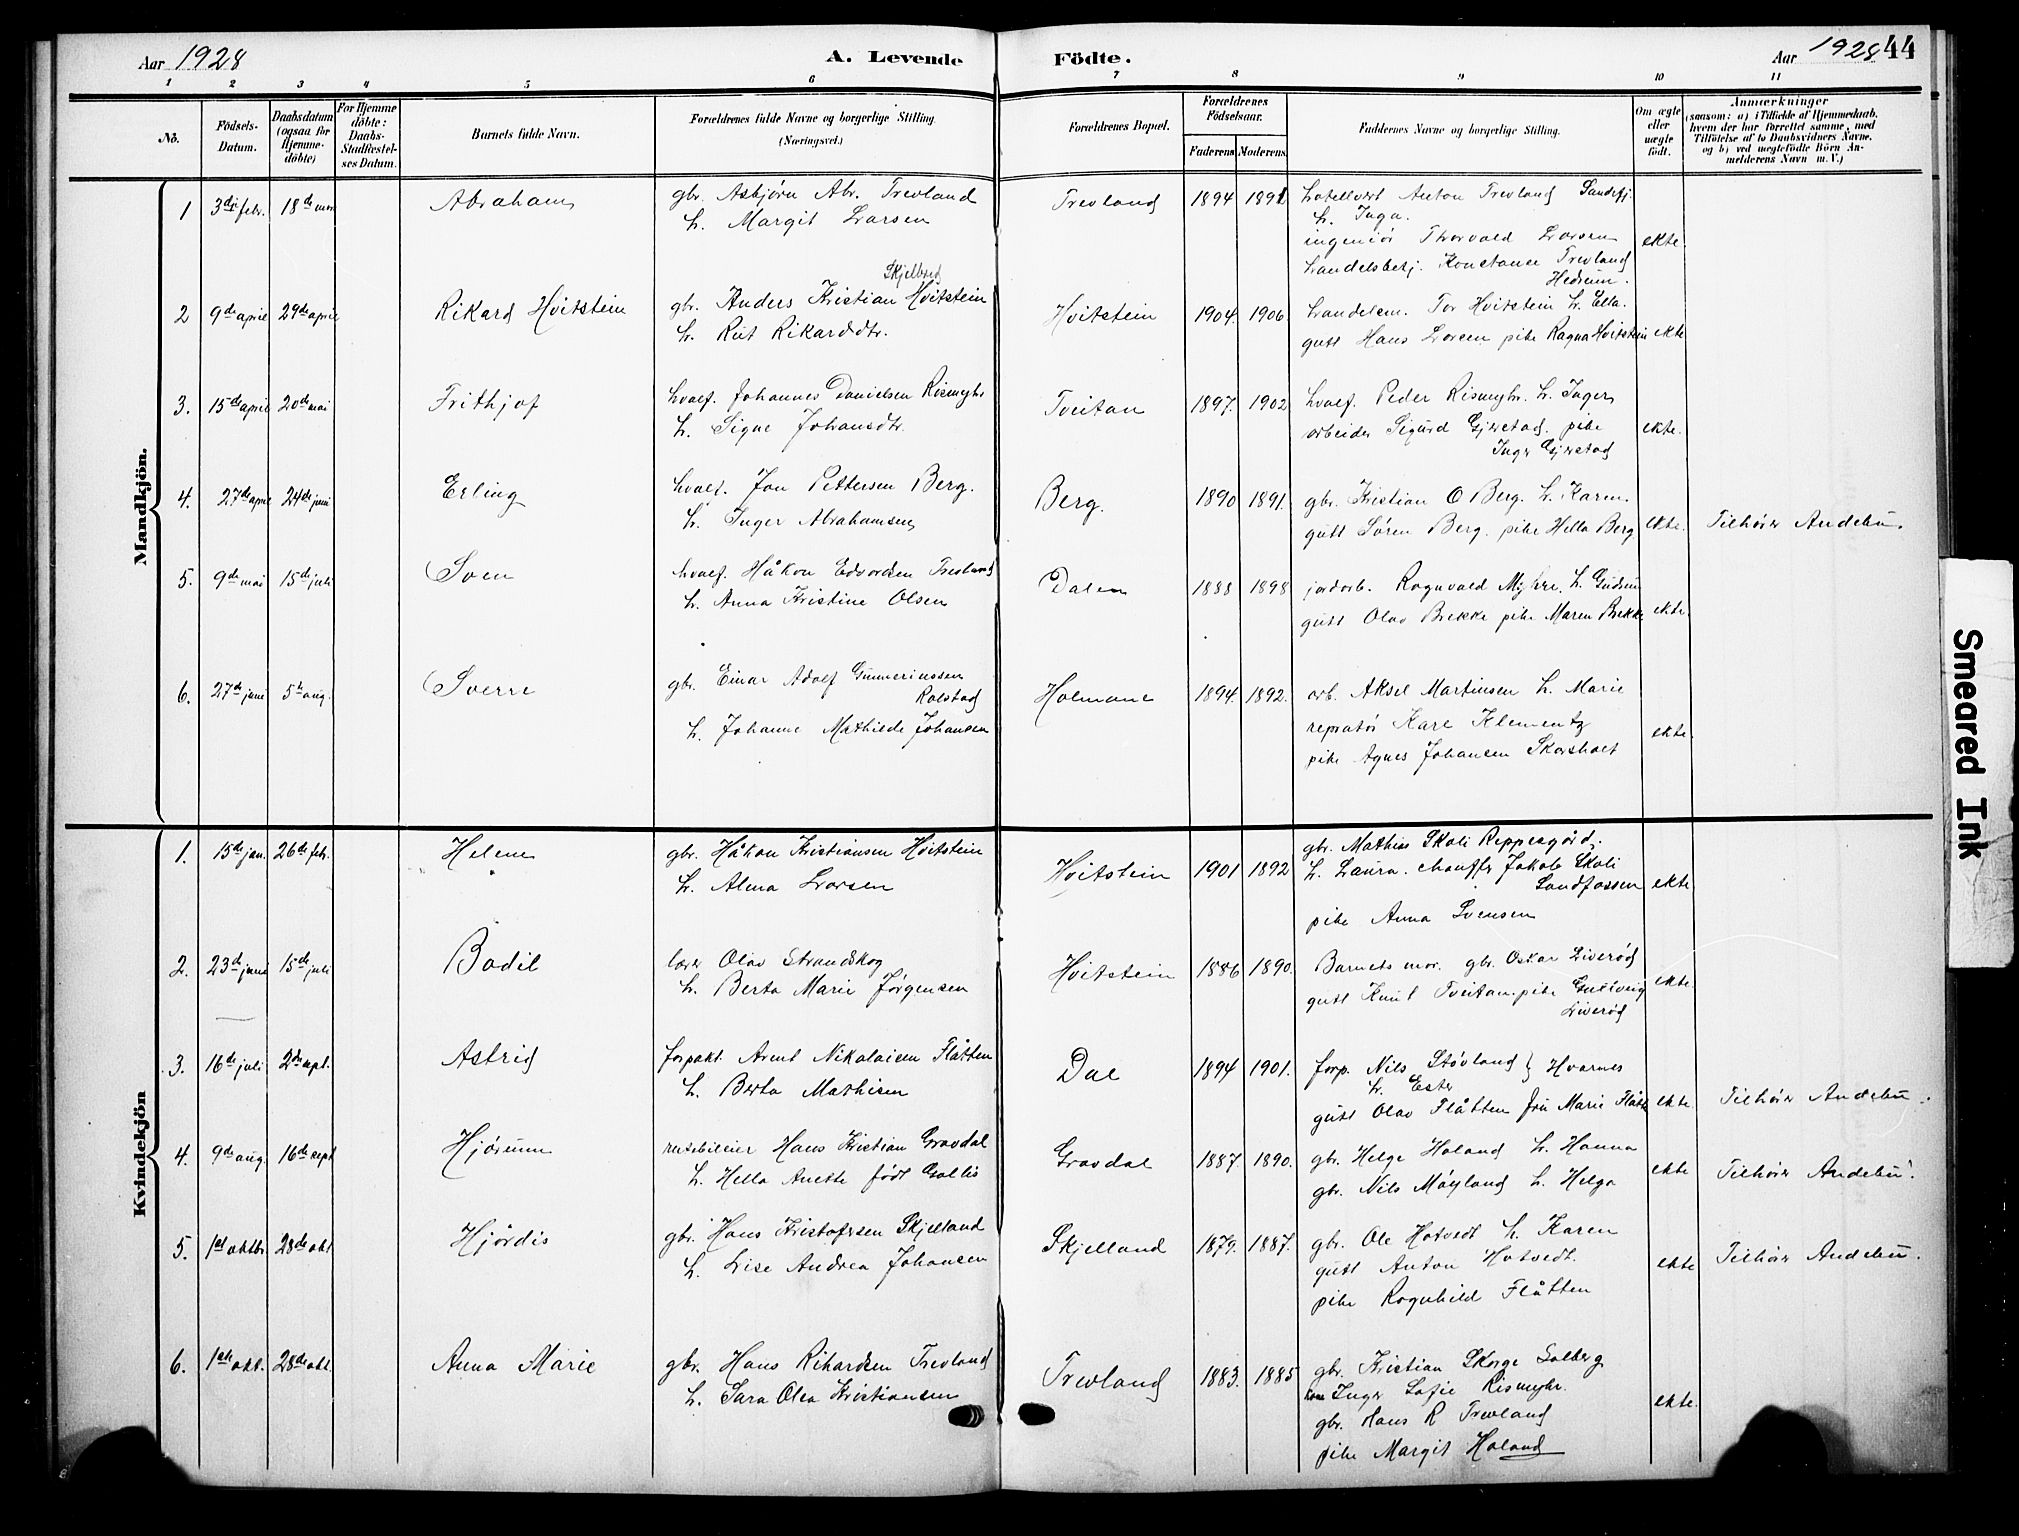 Aar 1928
A. Levende Födte.
Aar 1928 44
1 2 3 4 5 6 7 8 9 10 11
No. Födsels-Datum. Daabsdatum (ogsaa for Hjemmedöbte) For Hjemmedöbte: Daabs-Stadfæstelses Datum. Barnets fulde Navn. Forældrenes fulde Navne og borgerlige Stilling. (Næringsvei.) Forældrenes Bopæl. Forældrenes Födselsaar. Faderens Moderens Faddernes Navne og borgerlige Stilling. Om ægte eller uægte födt. Anmærkninger (saasom: a) i Tilfælde af Hjemmedaab, hvem der har forrettet samme, med Tilföielse af to Daabsvidners Navne. og b) ved uægtefödte Börn Anmelderens Navn m. V.)
Mandkjön.
1 3di febr. 18de mar Abraham gbr. Asbjørn Abr. Trevland Trevland 1894 1891 hotellvert Anton Trevland Sandefj.
h. Margit Larsen h. Inga.
ingeniør Thorvald Larsen ekte.
handelsbetj. Konstanse Trevland
Hedrum.
Skjelbred
2 9de april 29de april Rikard Hvitstein gbr. Anders Kristian Hvitstein Hvitstein 1904. 1906 handelsm. Tor Hvitstein h. Ella.
h. Rut Rikardsdtr. gutt Hans Larsen pike Ragna Hvitstein ekte
3. 15de april 20de mai Frithjof hvalf. Johannes Danielsen Rismyhr Tveitan 1897. 1902 hvalf. Peder Rismyhr. h. Inger
h. Signe Johansdtr. arbeider Sigurd Gjerstad. pike ekte.
Inger Gjerstad
4. 27de april 24de juni Erling hvalf. Jon Pettersen Berg. Berg. 1890 1891. gbr. Kristian O Berg. h. Karen.
h. Inger Abrahamsen gutt Søren Berg. pike Hella Berg ekte. Tilhører Andebu.
5. 9de mai 15de juli Sven hvalf. Håkon Edvardsen Trevland Dalen 1888 1898 jordarb. Ragnvald Myhre. h. Gudrun
h. Anna Kristine Olsen gutt Olav Brekke pike Maren Brekke ekte.
6. 27de juni 5te aug. Sverre gbr. Einar Adolf Gunneriussen Holmane 1894. 1892. arb. Aksel Martinsen h. Marie
Rolstad
h. Johanne Mathilde Johansen repratør Karl Klementz ekte.
pike Agnes Johansen Skorsholt
Kvindekjön
1. 15de jan. 26de febr. Helene gbr. Håkon Kristiansen Hvitstein Hvitstein 1901 1892 gbr. Mathias Skoli Reppesgård.
h. Alma Larsen h. Laura. chauffør Jakob Skoli
Sandfossen ekte
pike Anna Svensen
2. 23de juni 15de juli Bodil lærer Olav Strandskog Hvitstein 1886 1890. Barnets mor. gbr. Oskar Liverød
h. Berta Marie Jørgensen gutt Knut Tveitan. pike Gudveig ekte.
Liverød
3. 16de juli 2den sept. Astrid forpakt. Arent Nikolaisen Flåtten Dal 1894 1901. forp. Nils Støvland } Hvarnes
h. Berta Mathisen h. Ester
gutt Olav Flåtten fru Marie Flåtten ekte. Tilhører Andebu.
4. 9de aug. 16de sept Hjørunn rutebileier Hans Kristian Gravdal Gravdal 1887. 1890. gbr. Helge Holand h. Hanna
h. Hella Anette født Gallis gbr. Nils Møyland h. Helga ekte Tilhører Andebu.
5. 1st oktbr. 28de okt Hjørdis gbr. Hans Kristofersen Skjelland Skjelland 1879. 1887. gbr. Ole Hotvedt h. Karen
h. Lise Andrea Johansen gutt Anton Hotvedt. ekte Tilhører Andebu.
pike Ragnhild Flåtten
6. 1ste okt. 28de okt. Anna Marie gbr. Hans Rikardsen Trevland Trevland 1883. 1885 gbr. Kristian Skorge Solberg
h. Sara Olea Kristiansen Inger Sofie Rismyhr.
gbr. Hans R Trevland ekte.
pike Margit Holand
Smeared Ink